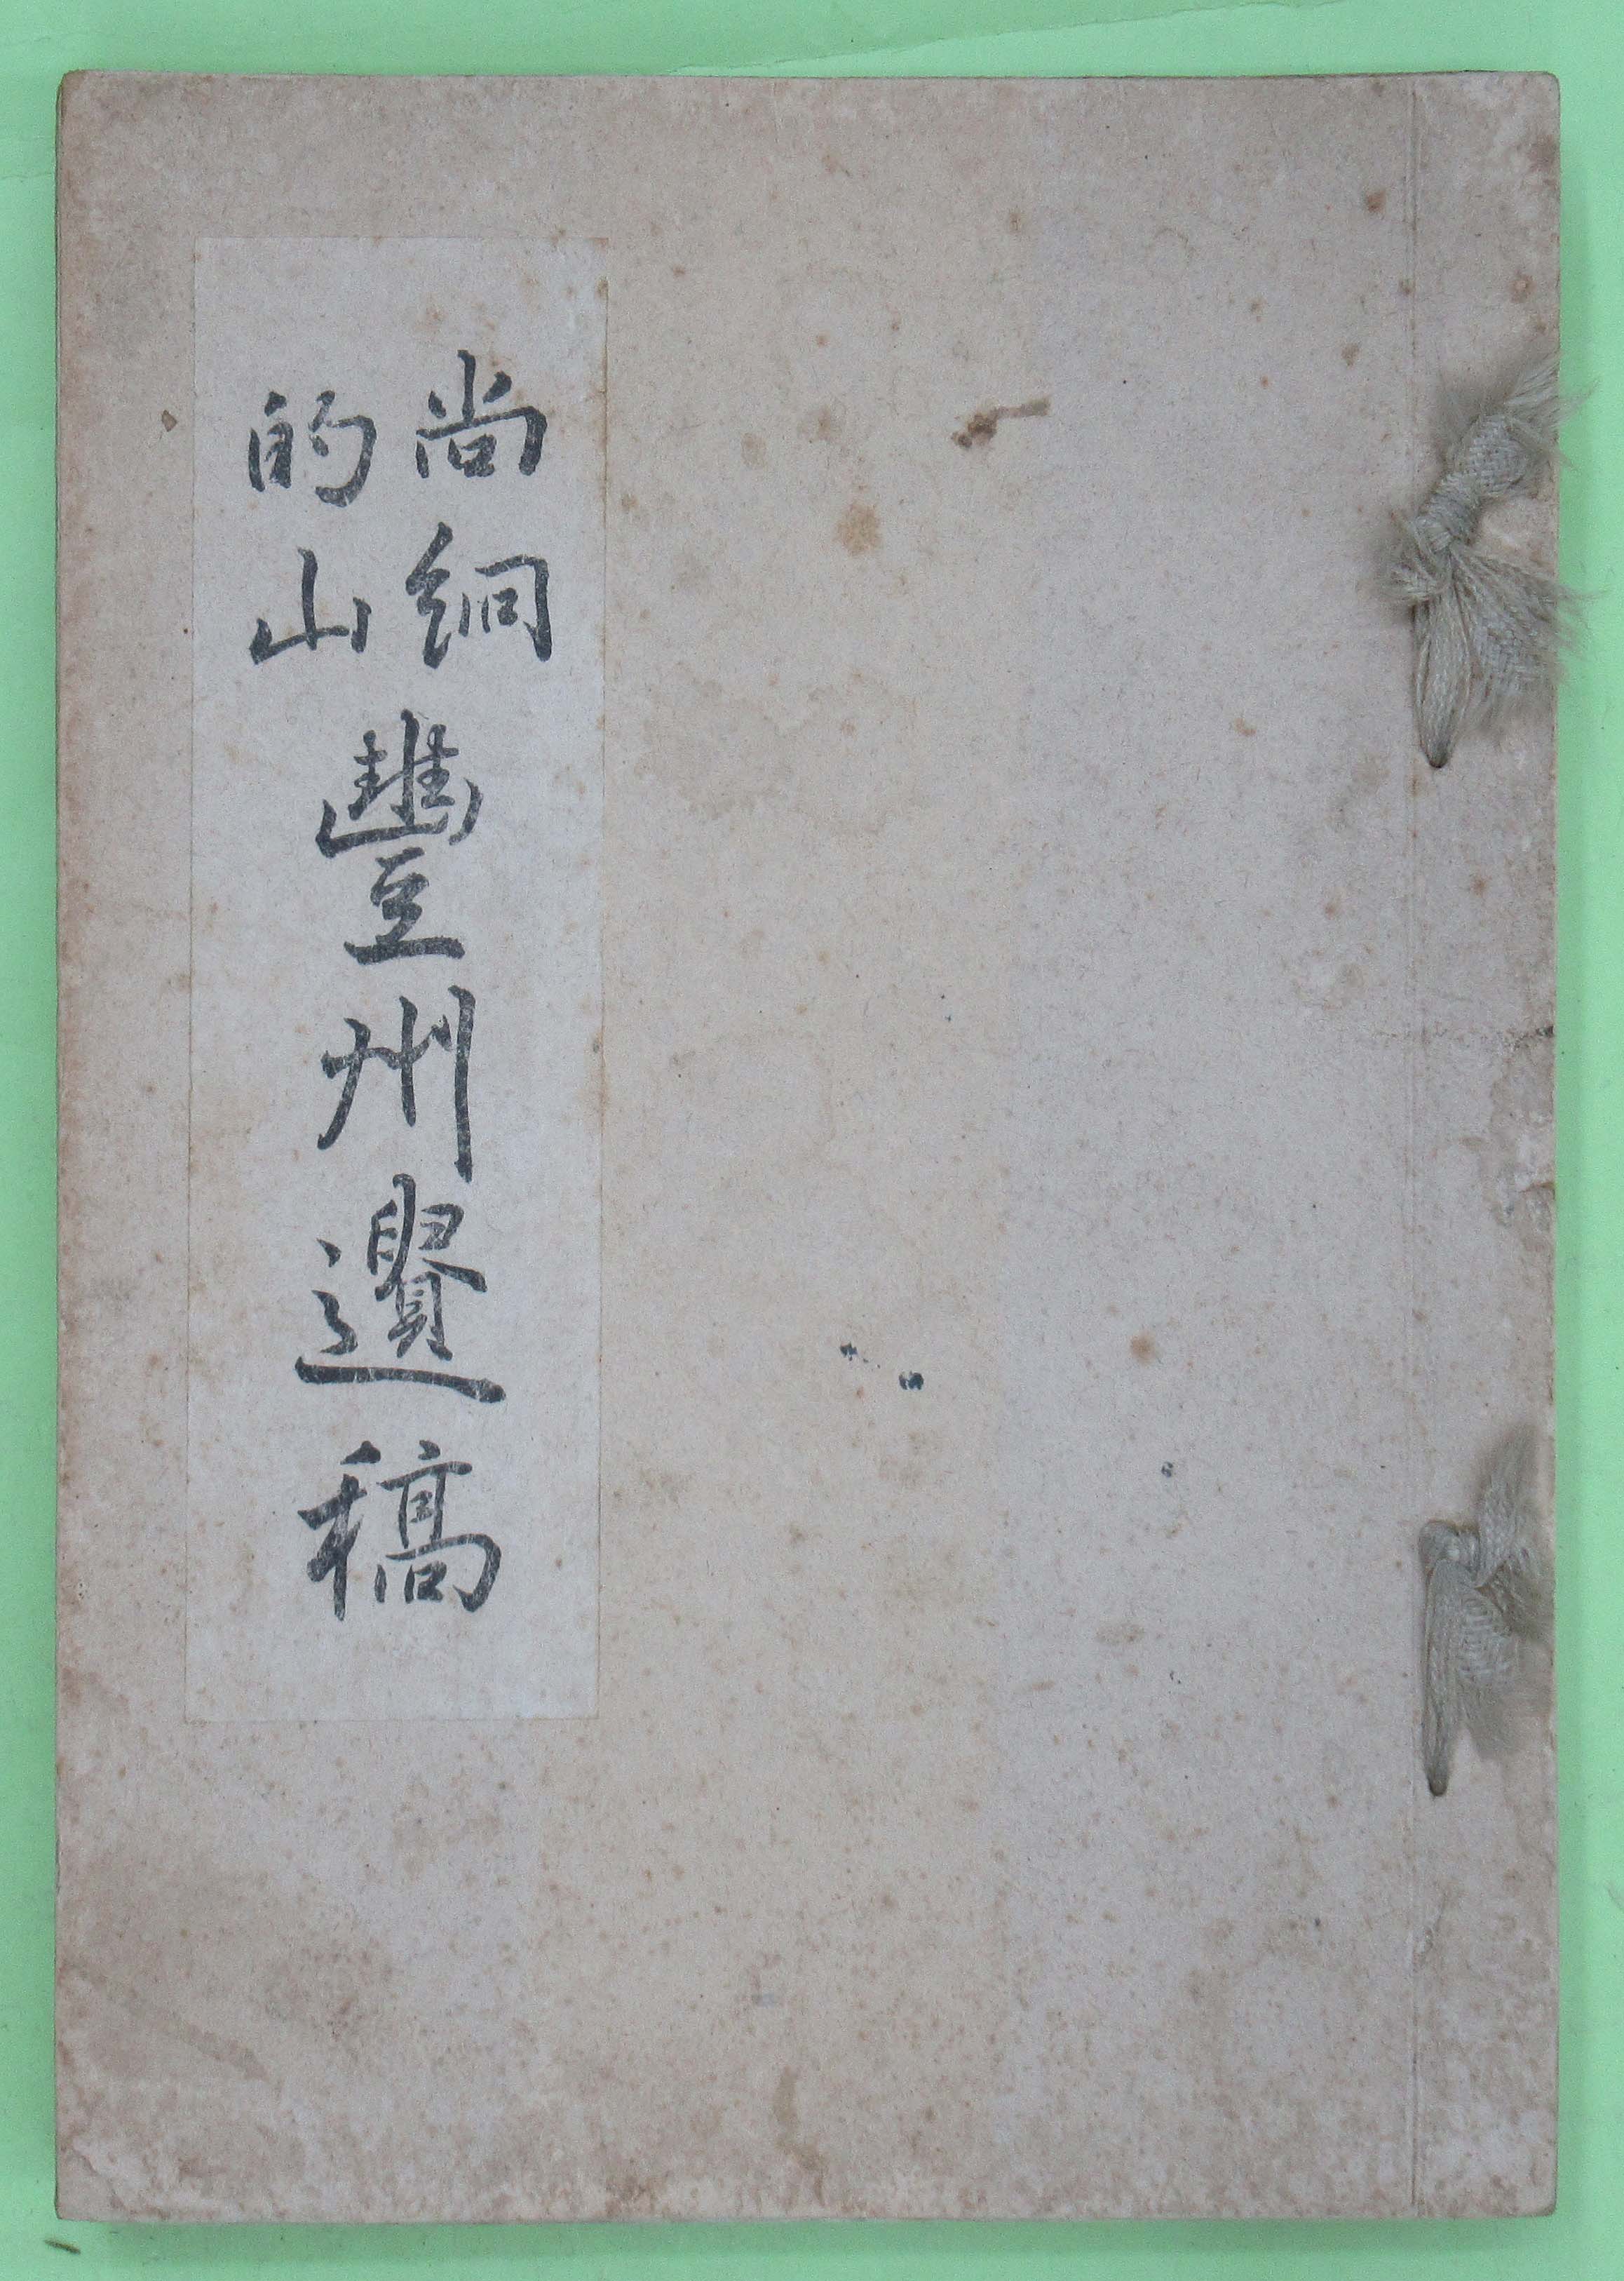 尚絅
的山
豐州遺稿